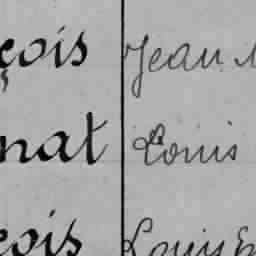 çois Jean
nat Louis
çois Louis